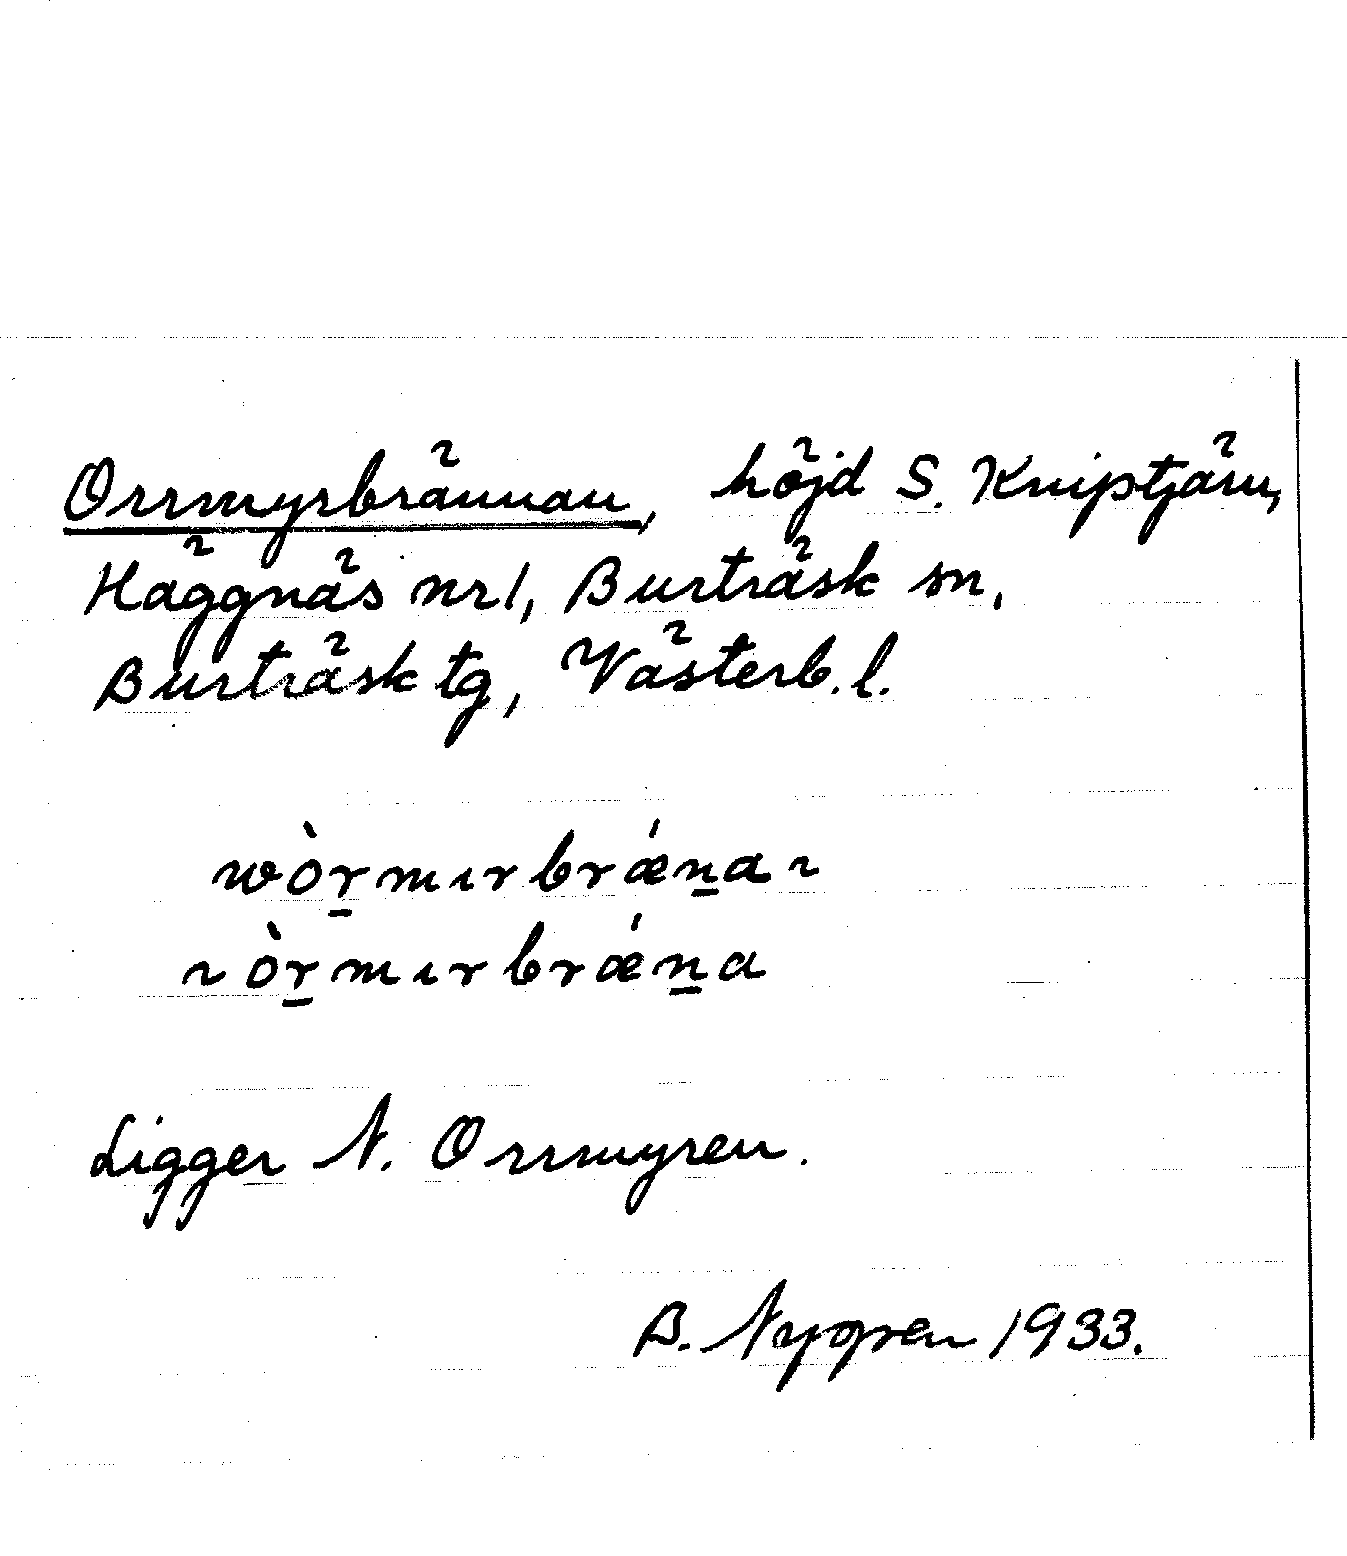 Orrmyrbrännan, höjd S. Kniptjärn,
Häggnäs nr 1, Burträsk sn,
Burträsk tg, Västerb. l.
wòr̲mırbrǽn̲a ~
~ òr̲mırbrǽn̲a
Ligger N. Orrmyren.
B. Nygren 1933.